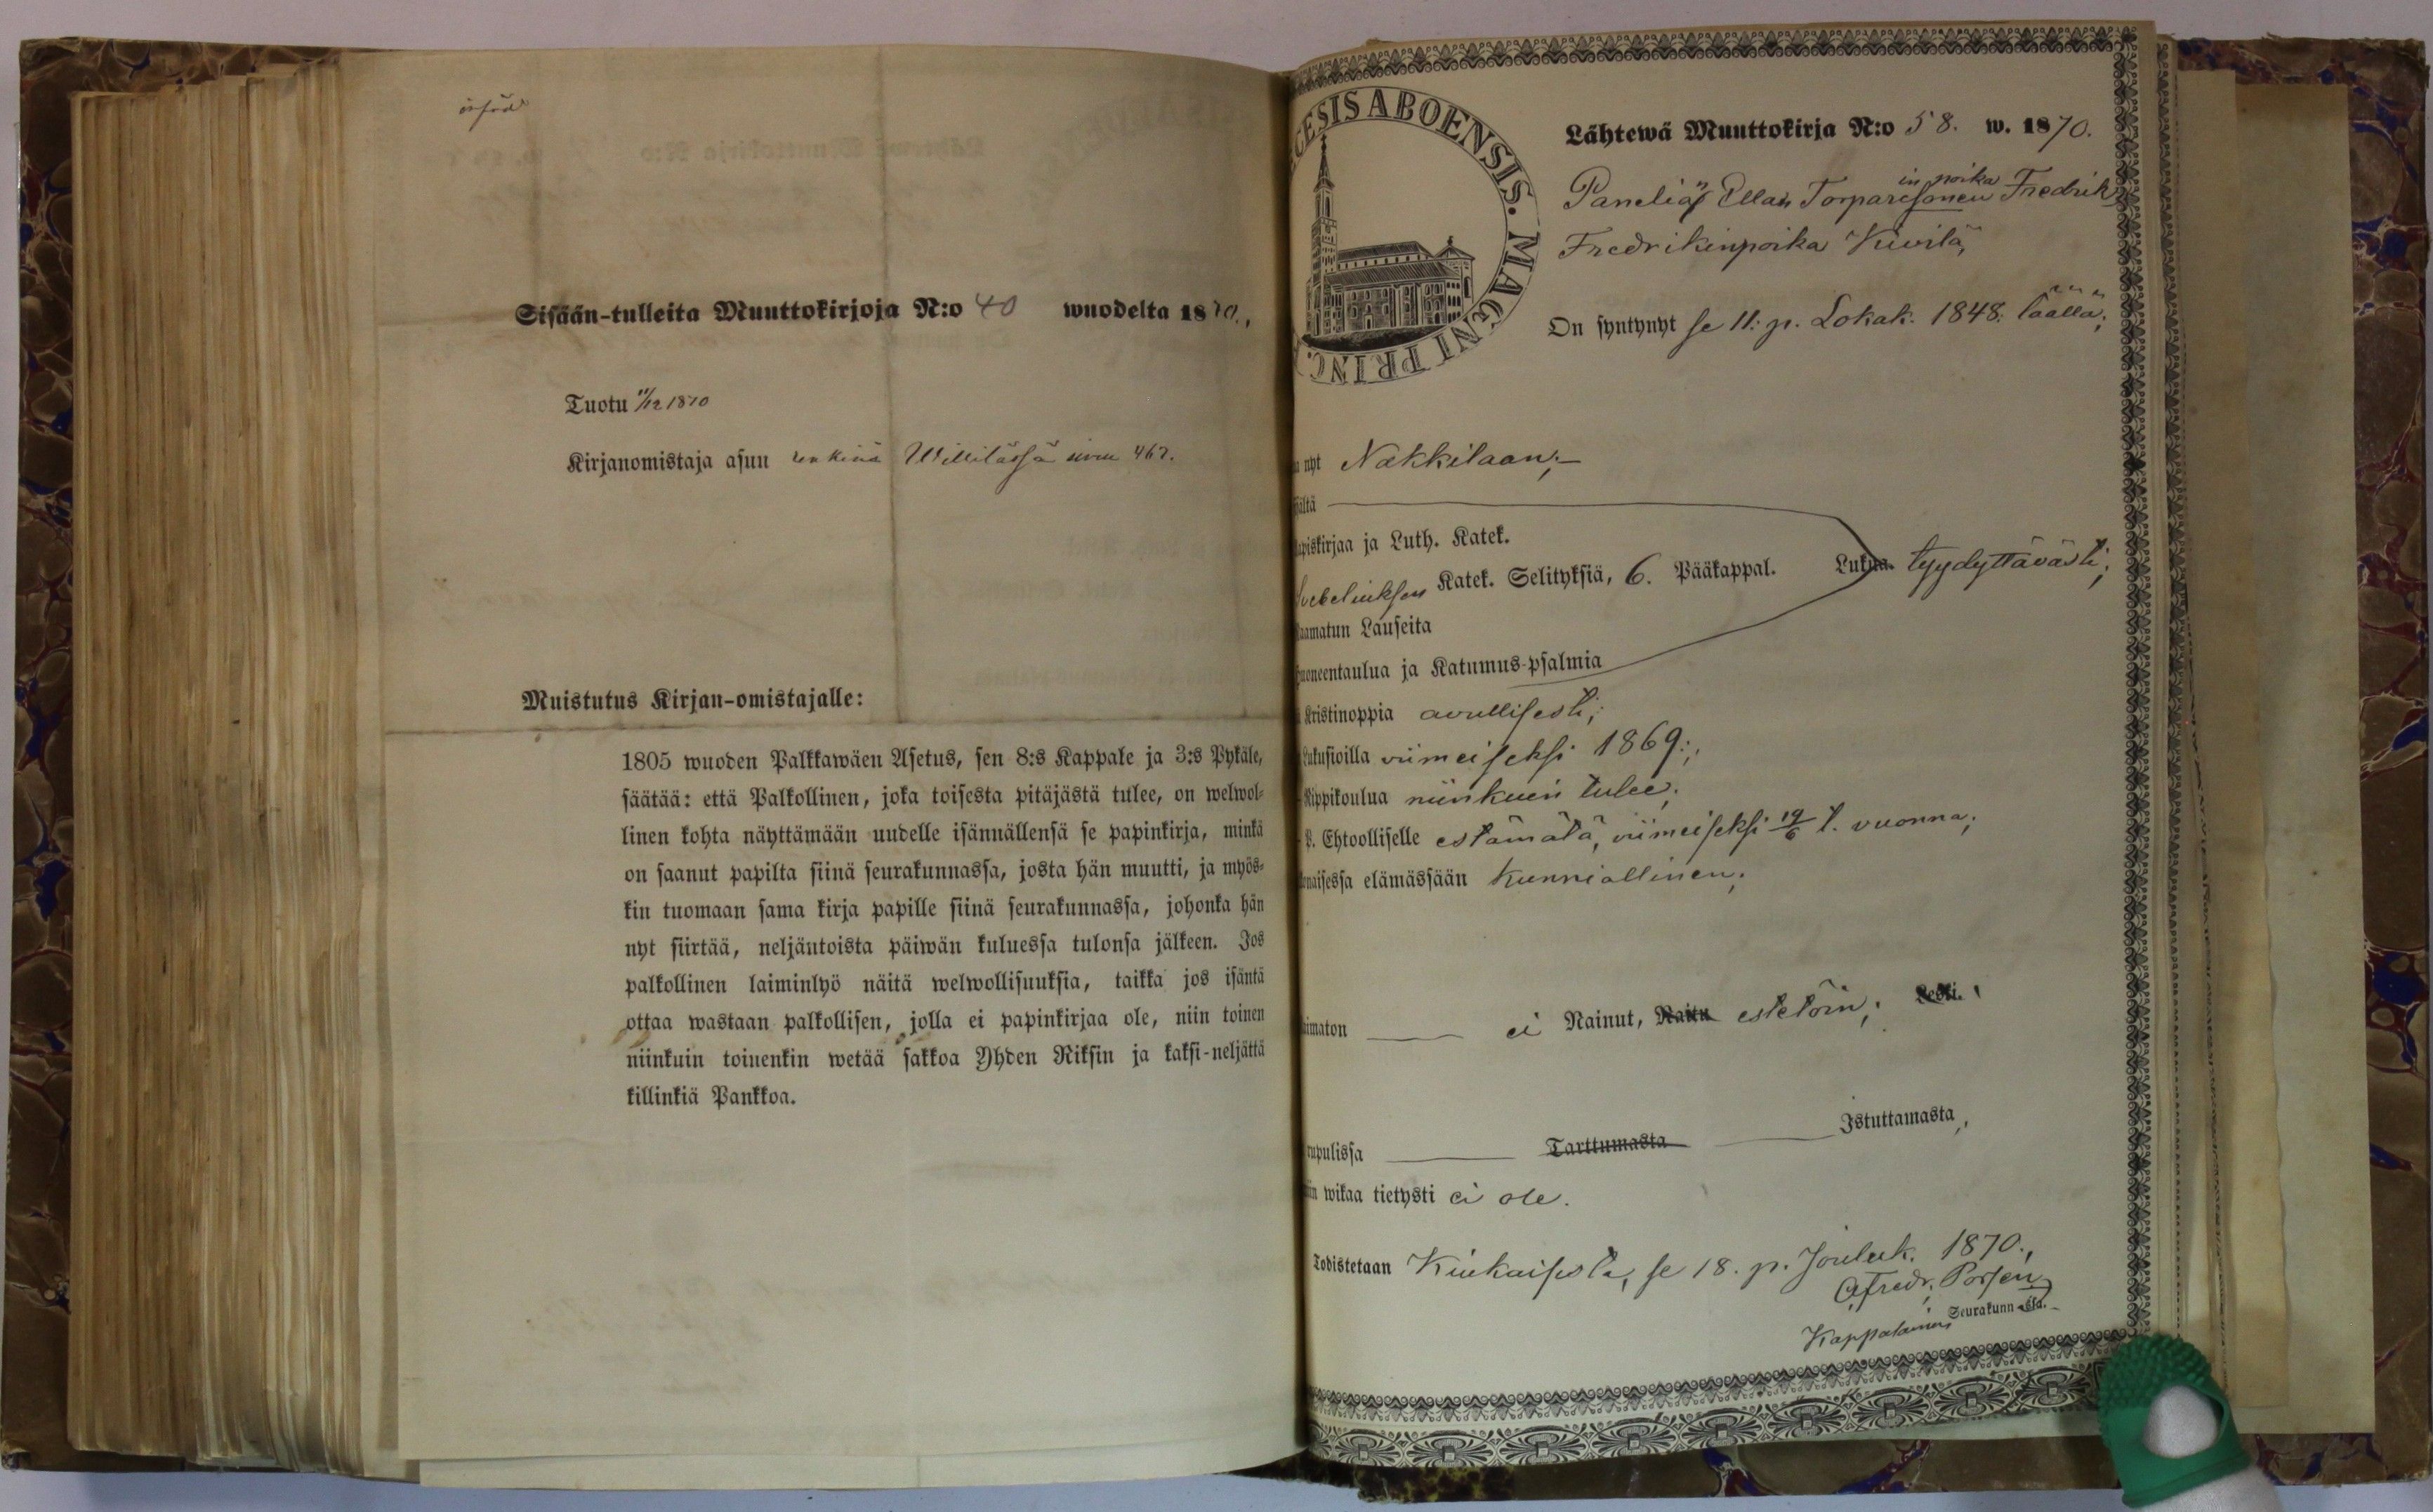 Sisään-tulleita Muuttokirjoja N:o 40 wuodelta 1870.,
Tuotu 11/12 1870
Kirjanomistaja asuu renkinä Willilässä sivu 467.
Muistutus Kirjan-omistajalle:
1805 wuoden Palkkawäen Asetus, sen 8:s Kappale ja 3:s Pykäle,
säätää: että Palkollinen, joka toisesta pitäjästä tulee, on welwol-
linen kohta näyttämään uudelle isännällensä se papinkirja, minkä
on saanut papilta siinä seurakunnassa, josta hän muutti, ja myös-
kin tuomaan sama kirja papille siinä seurakunnassa, johonka hän
nyt siirtää, neljäntoista päiwän kuluessa tulonsa jälkeen. Jos
palkollinen laiminlyö näitä welwollisuuksia, taikka jos isäntä
ottaa wastaan palkollisen, jolla ei papinkirjaa ole, niin toinen
niinkuin toinenkin wetää sakkoa Yhden Riksin ja kaksi-neljättä
killinkiä Pankkoa.
CESIS ABOENSIS. MAGNI PRINC.
Lähtewä Muuttokirja N:o 58. w. 1870.
Panelian Ellan Torparin poika Fredrik
Fredrikinpoika Kiivilä,
On syntynyt se 11. p. Lokak. 1848. täällä;
nyt Nakkilaan;
ältä
apiskirjaa ja Luth. Katek.
Svebeliuksen Katek. Selityksiä, 6. Pääkappal. Lukua tyydyttävästi;
aamatun Lauseita
uoneentaulua ja Katumus-psalmia
Kristinoppia avullisesti;
Lukusioilla viimeiseksi 1869;
Rippikoulua niinkuin tulee;
P. Ehtoolliselle estämätä, viimeiseksi 19/6 t. vuonna;
onaisessa elämässään kunniallinen;
aimaton ei Nainut, Naitu estetöin; Leski.
rupulissa Tarttumasta Istuttamasta,
in wikaa tietysti ei ole.
Todistetaan Kiukaisista, se 18. p. Jouluk. 1870.,
Fredr. Porsen
Kappalainen Seurakunn